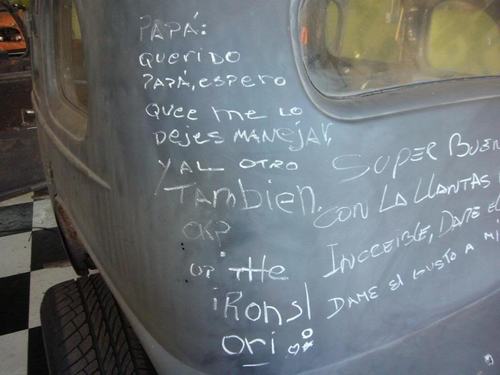 PAPÁ:
QUERIDO
PAPÁ, ESPERO
QUEE ME LO
DEJES MANEJAR,
Y AL OTRO
TAMBIEN.
UP THE
IRONS!
ORI
SUPER BUEN
CON LA LLANTAS
INCCEIBLE, DAME EL
DAME EL GUSTO A MI